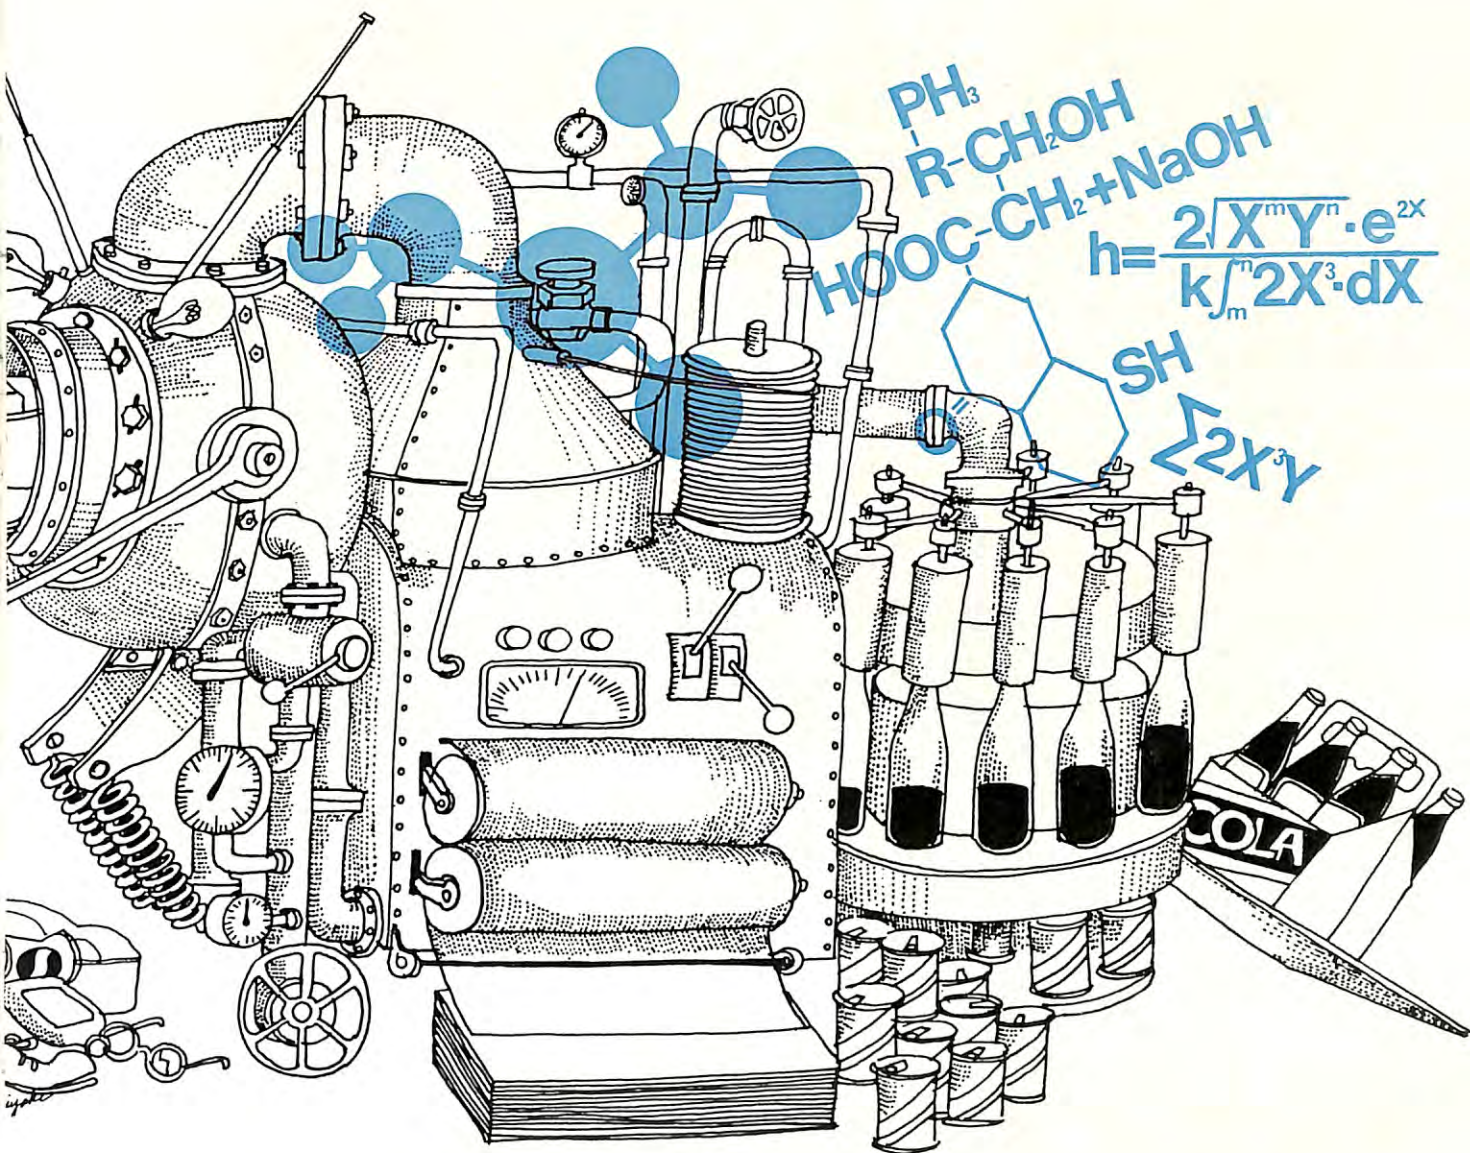 PH₃
R-CH₂OH
HOOC-CH₂+NaOH
h= 2√XᵐYⁿ·e²ˣ / k∫ₘⁿ2X³·dX
O
=
SH
∑2X³Y
COLA